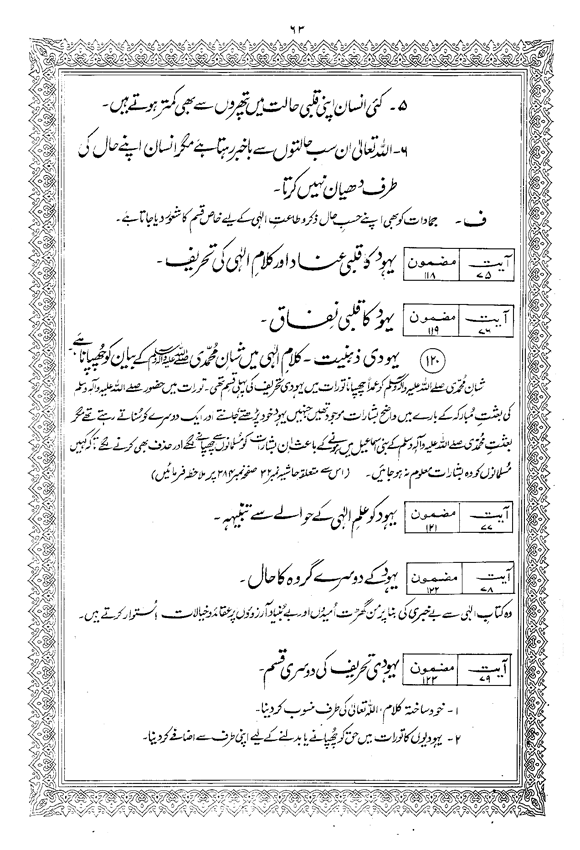 ۶۳
۵۔ کئی انسان اپنی قلبی حالت میں پتھروں سے بھی کمتر ہوتے ہیں۔
۶۔ اللہ تعالیٰ ان سب حالتوں سے باخبر رہتا ہے مگر انسان اپنے حال کی
طرف دھیان نہیں کرتا۔
ف۔ جمادات کو بھی اپنے حسبِ حال ذکر و طاعتِ الٰہی کے لیے خاص قسم کا شعور دیا جاتا ہے۔
آیت ۷۵ مضمون ۱۱۸ یہود کا قلبی عناد اور کلامِ الٰہی کی تحریف۔
آیت ۷۶ مضمون ۱۱۹ یہود کا قلبی نفاق۔
۱۲۰ یہودی ذہنیت۔ کلامِ الٰہی میں شانِ مُحمّدی ﷺ کے بیان کو چھپانا ہے
شانِ مُحمّدی صلے اللہ علیہ وآلہٖ وسلم کو عمداً چھپانا تورات میں یہودی تحریف کی پہلی قسم تھی۔ تورات میں حضور صلے اللہ علیہ وآلہٖ وسلم
کی بعثتِ مُبارکہ کے بارے میں واضح بشارات موجود تھیں جنہیں یہود خود پڑھتے جانتے اور ایک دوسرے کو سُناتے رہتے تھے مگر
بعثتِ مُحمّدی صلے اللہ علیہ وآلہٖ وسلم کے بنی اسماعیل میں ہونے کے باعث ان بشارات کو مُسلمانوں سے چھپانے لگے اور حذف بھی کرنے لگے تاکہ کہیں
مُسلمانوں کو وہ بشارات معلوم نہ ہو جائیں۔ (اس سے متعلقہ حاشیہ نمبر ۲ صفحہ نمبر ۲۸۴ پر ملاحظہ فرمائیں)
آیت ۷۷ مضمون ۱۲۱ یہود کو علمِ الٰہی کے حوالے سے تنبیہہ۔
آیت ۷۸ مضمون ۱۲۲ یہود کے دوسرے گروہ کا حال۔
وہ کتابِ الٰہی سے بے خبری کی بنا پر من گھڑت اُمیدوں اور بے بُنیاد آرزوؤں پر عقائد و خیالات اُستوار کرتے ہیں۔
آیت ۷۹ مضمون ۱۲۳ یہودی تحریف کی دوسری قسم۔
۱۔ خود ساختہ کلام، اللہ تعالیٰ کی طرف منسوب کر دینا۔
۲۔ یہودیوں کا تورات میں حق کو چھپانے یا بدلنے کے لیے اپنی طرف سے اضافے کر دینا۔